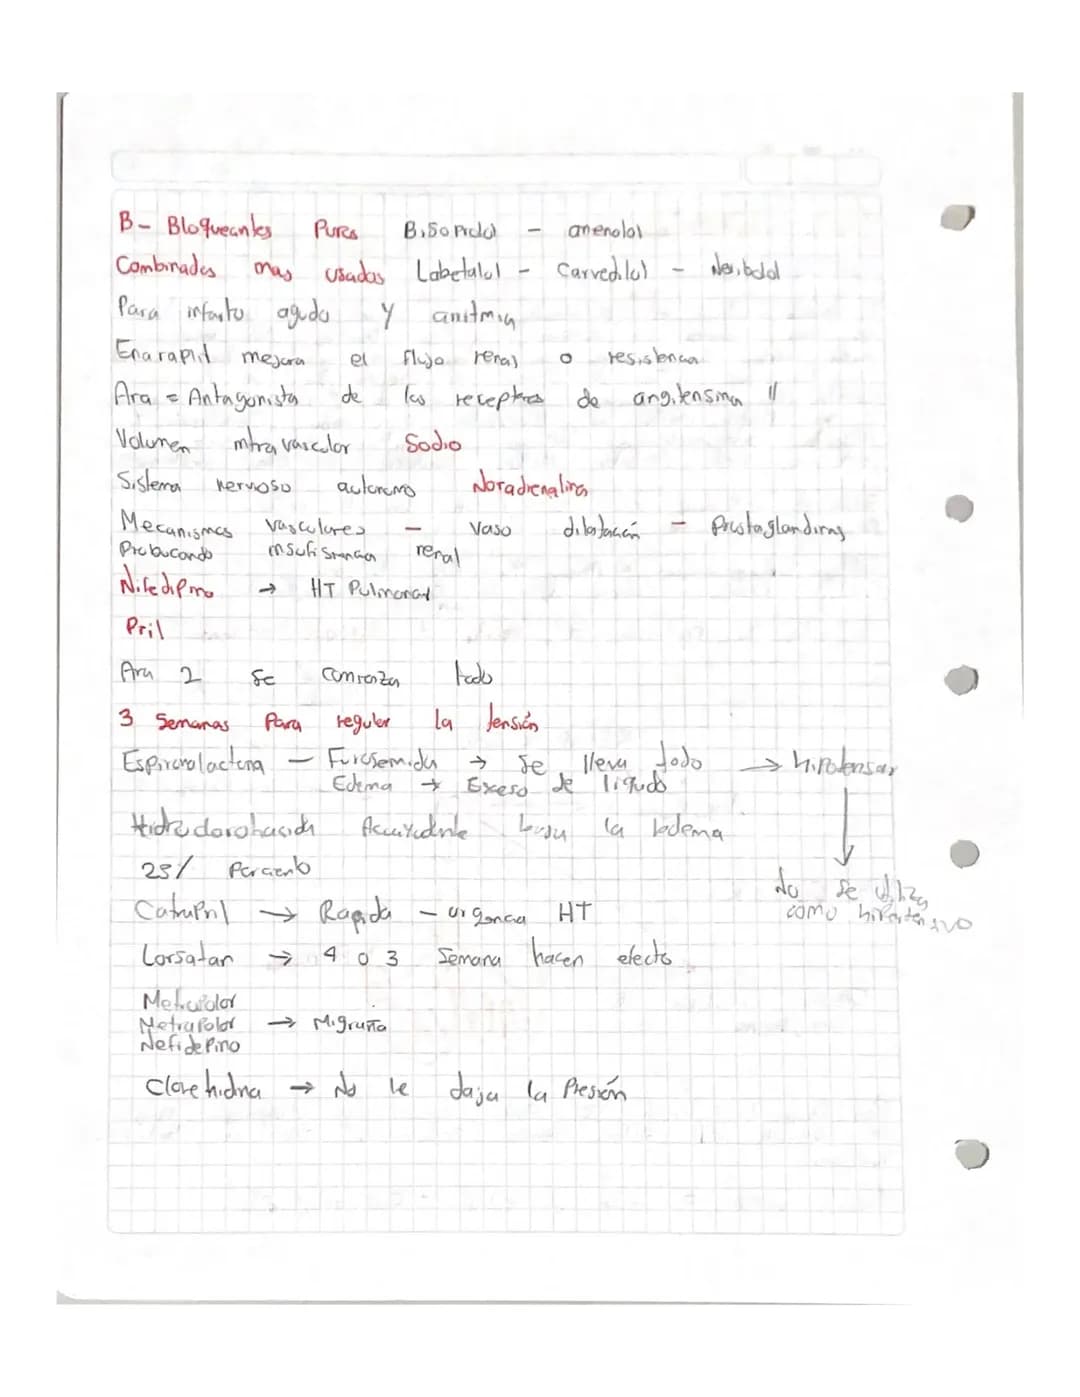 B- Bloqueantes Puros Bisoprolol - atenolol
Combinados mas usados Labetalol - Carvedilol - Nevibolol
Para infarto agudo y arritmia
Enarapril mejora el Flujo renal o resistencia
Ara = Antagonista de los receptores de angitensina II
Volumen intravascular Sodio
Sistema nervioso autonomo Noradrenalina
Mecanismos vasculares - Vaso dilatación - Prostaglandinas
Probucando renal
Nifedipino → HT Pulmonar
Pril
Ara 2 se comienza todo
3 Semanas Para regular la tensión
Espironolactona - Furosemida → Se lleva todo → hipotensor
Edema → Exeso de liquido
la edema
No se utiliza
25% Porciento
como hipertensivo
Catopril → Rapida - urgencia HT
Lorsatan → 4 o 3 Semana hacen efecto
Metropolol → Migraña
Nefidepino
Clorehidna → No le daja la Presión